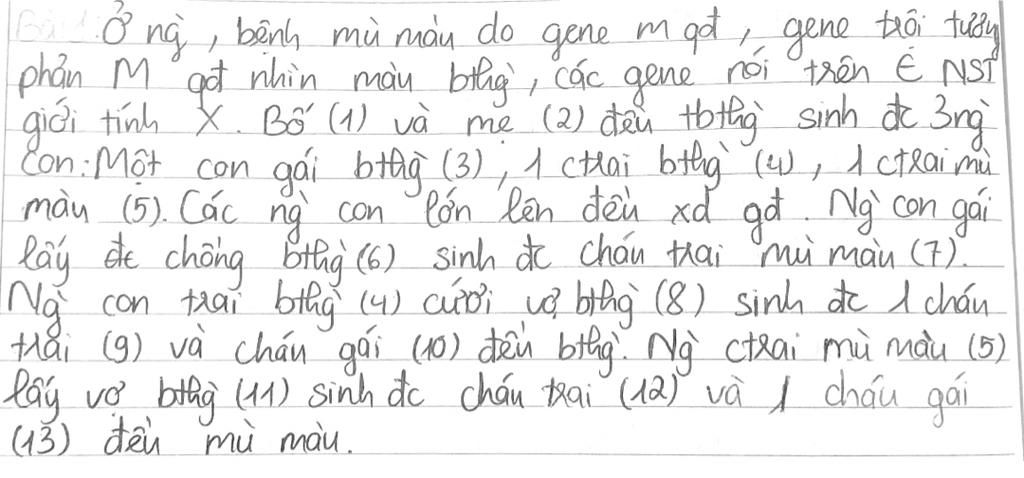 Ở ng̀, bệnh mù màu do gene m qđ, gene trội tương
phản M qđ nhìn màu bthg̀, các gene nói trên € NST
giới tính X. Bố (1) và mẹ (2) đều tbthg̀ sinh đc 3ng̀
con: Một con gái bthg̀ (3), 1 ctrai bthg̀ (4), 1 ctrai mù
màu (5). Các ng̀ con lớn lên đều xd gđ. Ng̀ con gái
lấy đc chồng bthg̀ (6) sinh đc cháu trai mù màu (7).
Ng̀ con trai bthg̀ (4) cưới vợ bthg̀ (8) sinh đc 1 cháu
trai (9) và cháu gái (10) đều bthg̀. Ng̀ ctrai mù màu (5)
lấy vợ bthg̀ (11) sinh đc cháu trai (12) và 1 cháu gái
(13) đều mù màu.